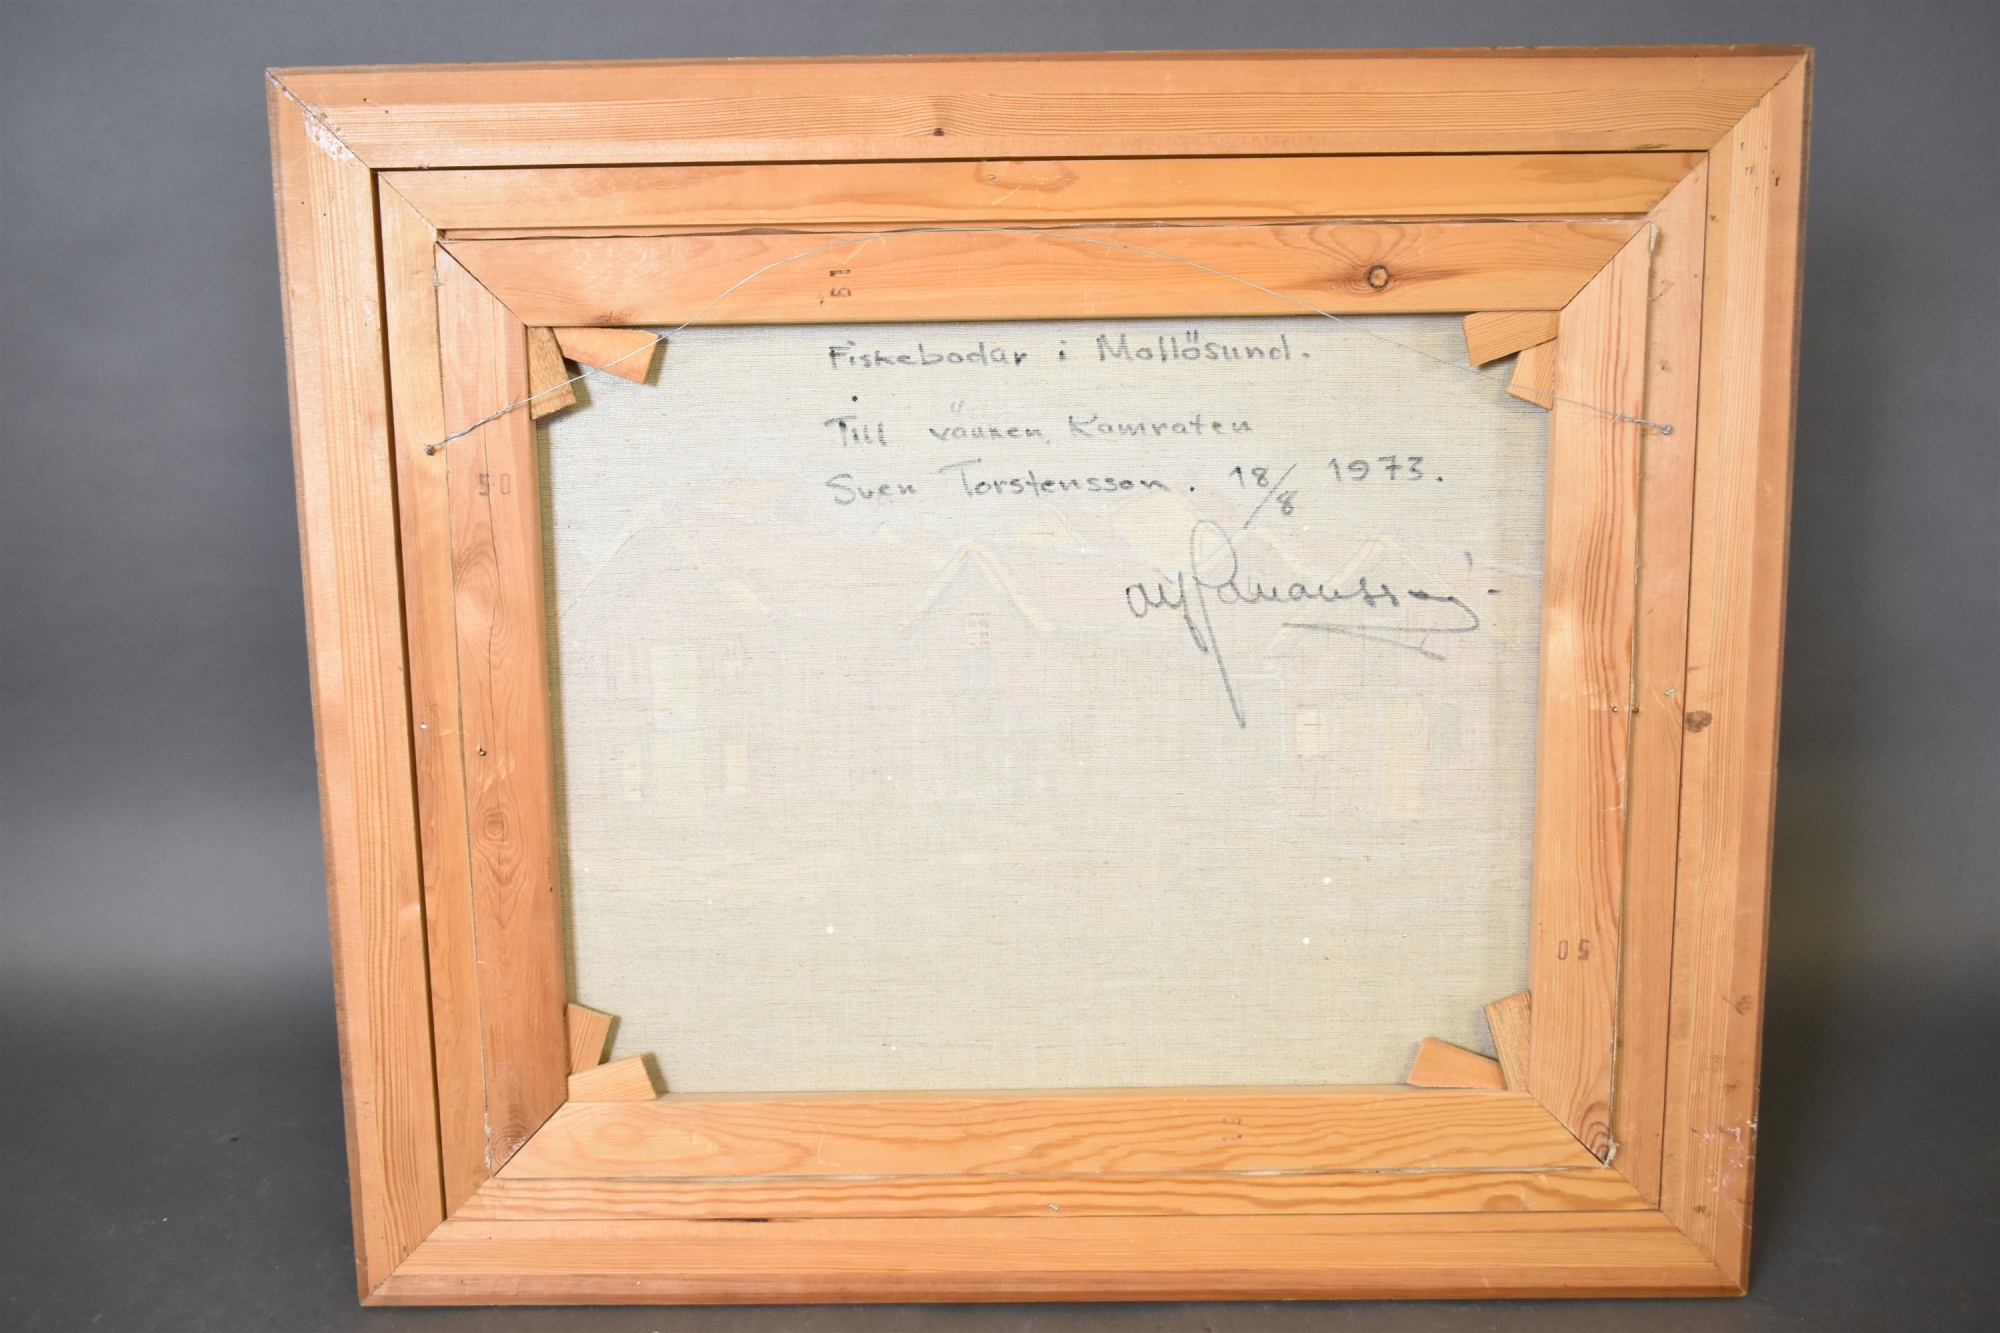 61
Fiskebodar i Mollösund.
Till vännen, Kamraten
Sven Torstensson. 18/8 1973.
Alf
50
50